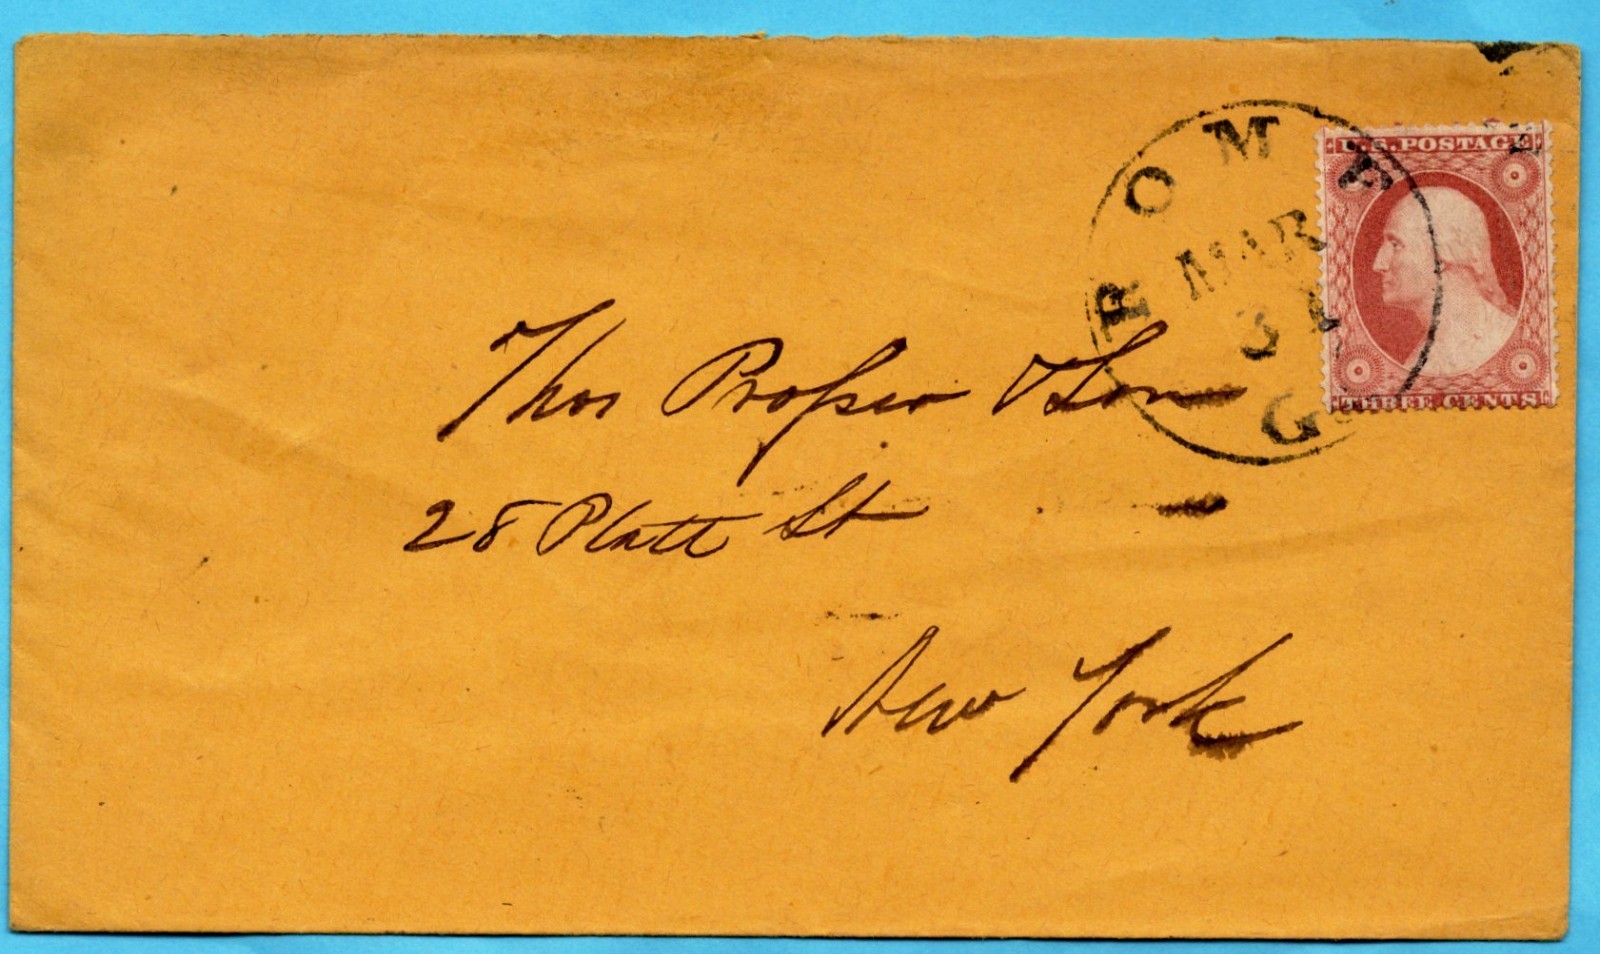 U.S. POSTAGE
THREE CENTS
ROME
MAR
31
G
Thos Prosser & Son
28 Platt St
New York